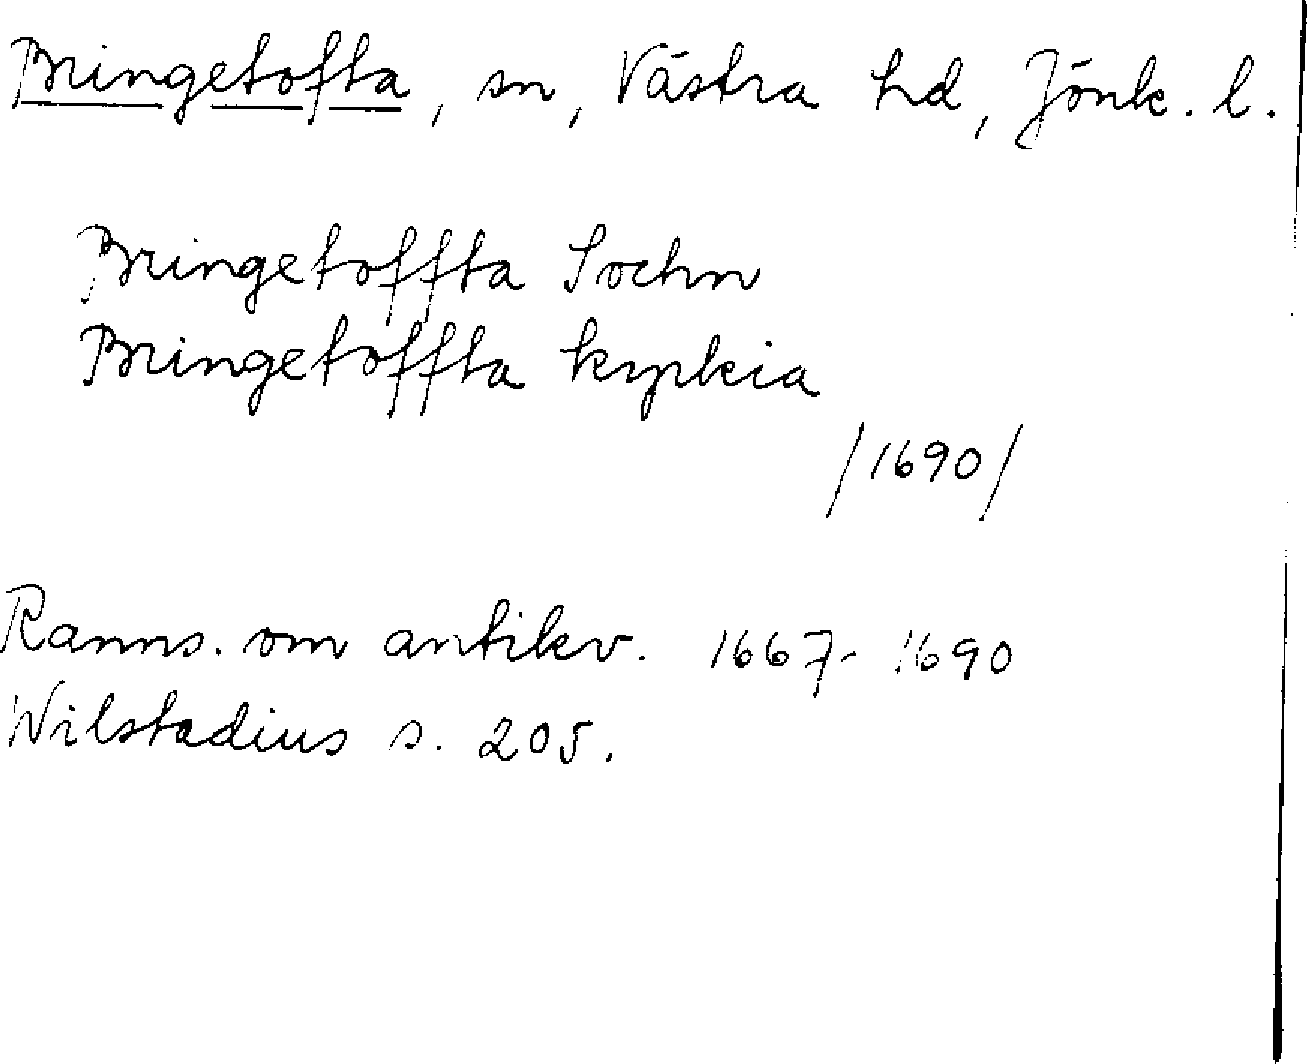 Bringetofta, sn, Västra hd, Jönk. l.
Bringetoffta Sochn
Bringetoffta kyrkia
/1690/
Ranns. om antikv. 1667-1690
Wilstadius s. 205.